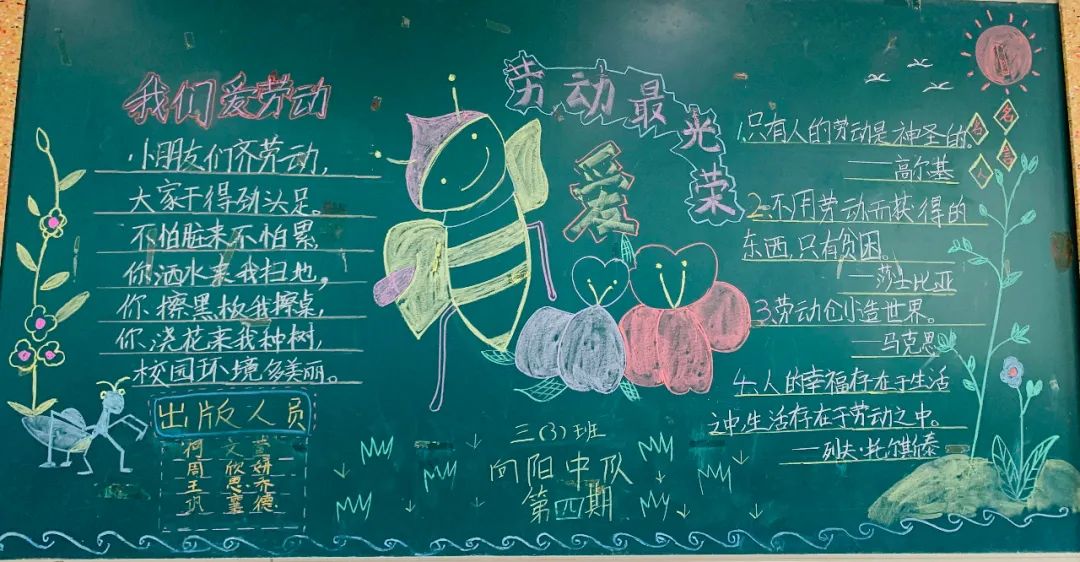 我们爱劳动
小朋友们齐劳动,
大家干得劲头足。
不怕脏来不怕累,
你洒水来我扫地,
你擦黑板我擦桌,
你浇花来我种树,
校园环境多美丽。
出版人员
周欣妍
劳动最光荣
爱
三(3)班
向阳中队
第四期
名人名言
1.只有人的劳动是神圣的。
——高尔基
2.不用劳动而获得的
东西,只有贫困。
——莎士比亚
3.劳动创造世界。
——马克思
4.人的幸福存在于生活
之中,生活存在于劳动之中。
——列夫·托尔斯泰